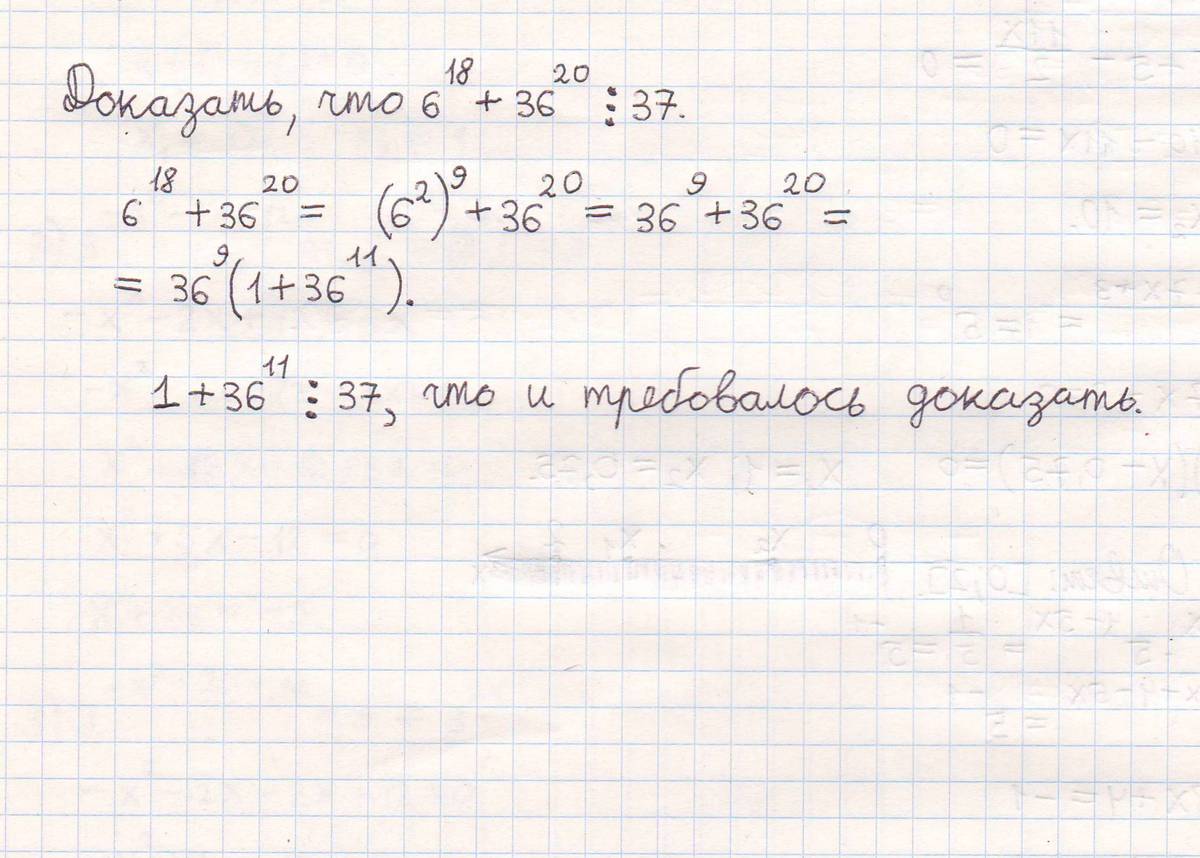 Доказать, что 6¹⁸ + 36²⁰ ⋮ 37.
6¹⁸ + 36²⁰ = (6²)⁹ + 36²⁰ = 36⁹ + 36²⁰ =
= 36⁹(1 + 36¹¹).
1 + 36¹¹ ⋮ 37, что и требовалось доказать.